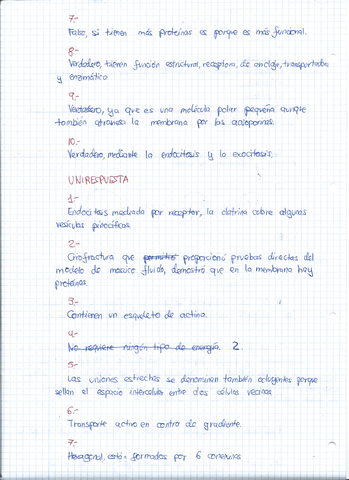 7.-
Falso, si tienen más proteínas es porque es más funcional.
8-
Verdadero, tienen función estructural, receptora, de anclaje, transportadora
y enzimática
9.-
Verdadero, ya que es una molécula polar pequeña aunque
también atraviesa la membrana por las acuoporinas.
10.-
Verdadero, mediante la endocitosis y la exocitosis.
UNIRESPUESTA
1-
Endocitosis mediada por receptor, la clatrina cubre algunas
vesículas
2.-
Criofractura que permitió proporcionó pruebas directas del
modelo de mosaico fluido, demostró que en la membrana hay
proteínas.
3.-
Contienen un esqueleto de actina.
4.-
No requiere ningún tipo de energía. 2.
5-
Las uniones estrechas se denominan también ocluyentes porque
sellan el espacio intercelular entre dos células vecinas.
6.-
Transporte activo en contra de gradiente.
7.-
Hexagonal, están formados por 6 conexinas